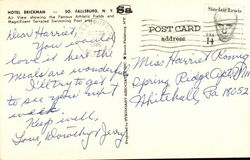 HOTEL BRICKMAN — SO. FALLSBURG, N. Y.
Air View showing the Famous Athletic Fields and
Magnificent Terraced Swimming Pool area.
Dear Harriet,
You would
love it here the
meals are wonderful
I'll try to get
to see you next
week
Keep well,
Love, Dorothy & Jerry
POST CARD
address
Sinclair Lewis
USA
14
Miss Harriet
Spring Ridge Apt
Whitehall, Pa 18052